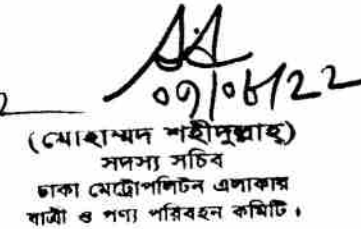 ০৭/০৬/22
(মোহাম্মদ শহীদুল্লাহ)
সদস্য সচিব
ঢাকা মেট্রোপলিটন এলাকার
যাত্রী ও পণ্য পরিবহন কমিটি।